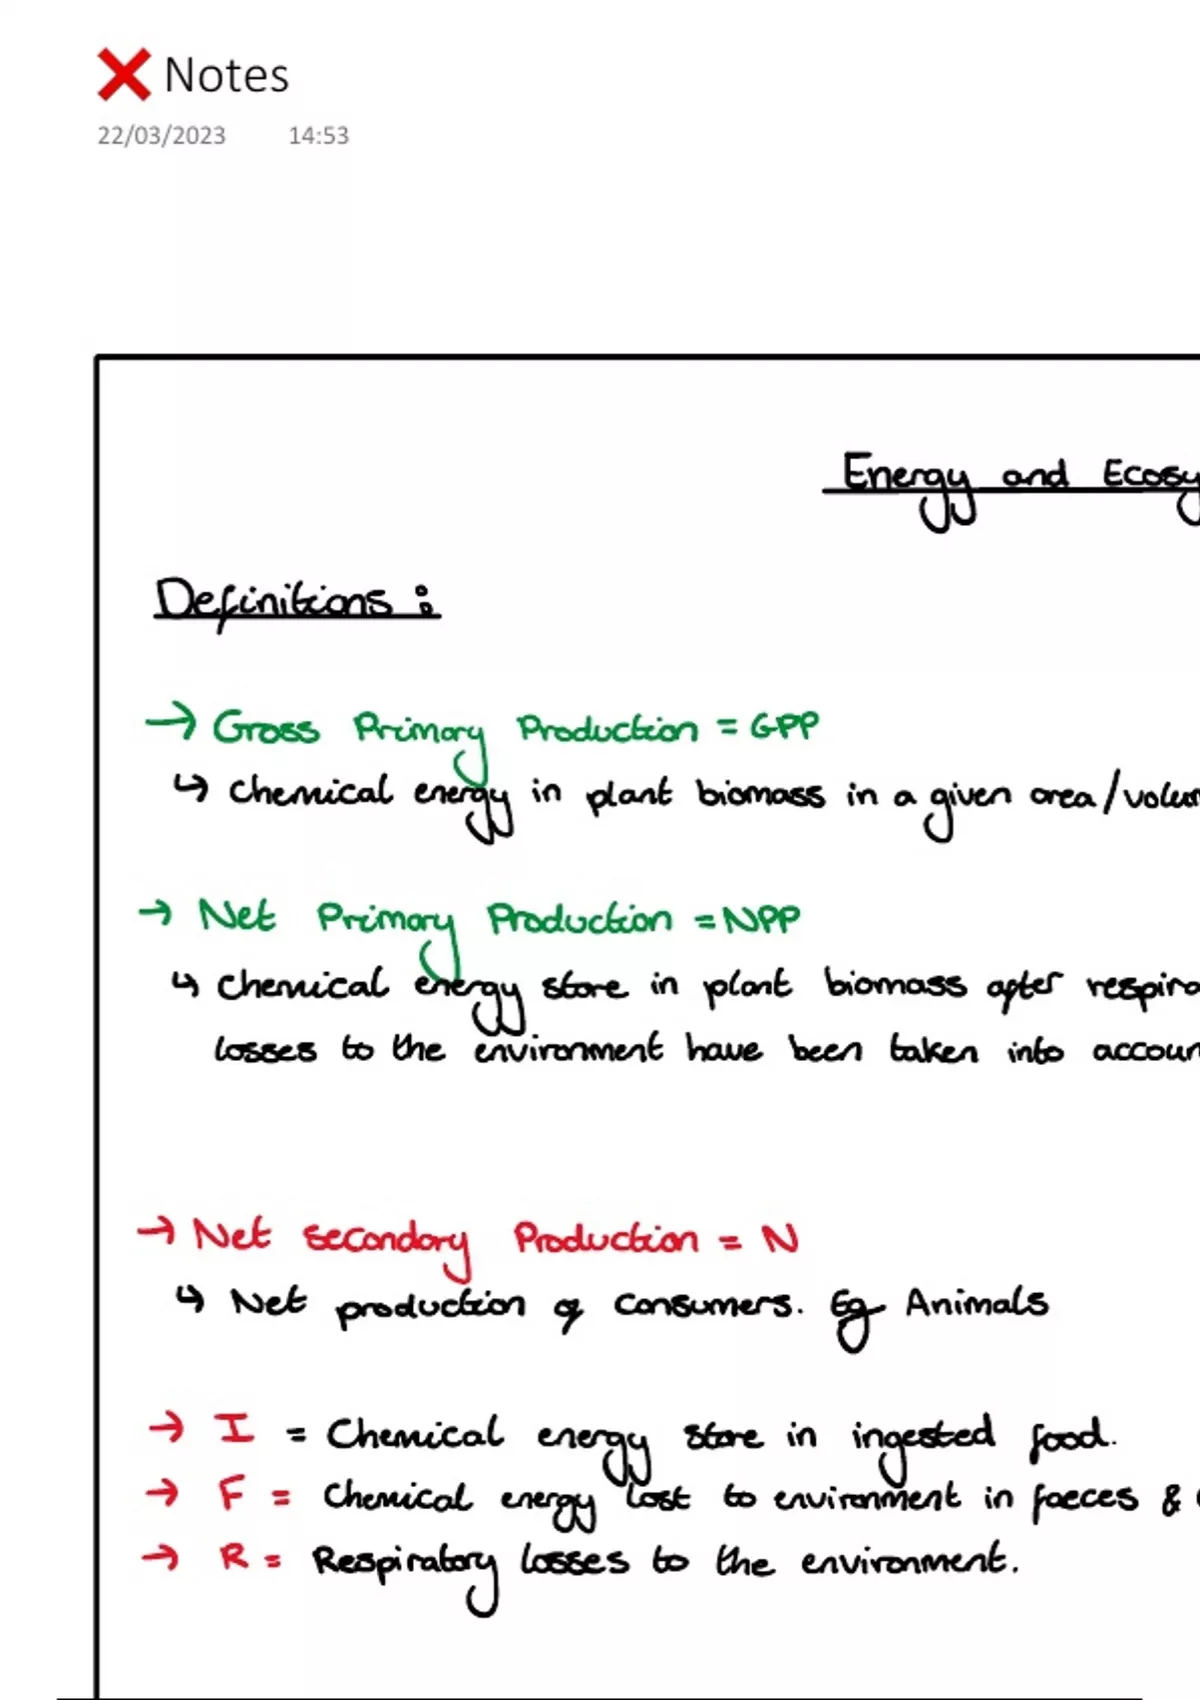 ❌ Notes
22/03/2023 14:53
Energy and Ecosy
Definitions :
→ Gross Primary Production = GPP
↳ Chemical energy in plant biomass in a given area/volum
→ Net Primary Production = NPP
↳ Chemical energy store in plant biomass after respira
losses to the environment have been taken into accoun
→ Net Secondary Production = N
↳ Net production of consumers. Eg Animals
→ I = Chemical energy store in ingested food.
→ F = Chemical energy lost to environment in faeces &
→ R = Respiratory losses to the environment.